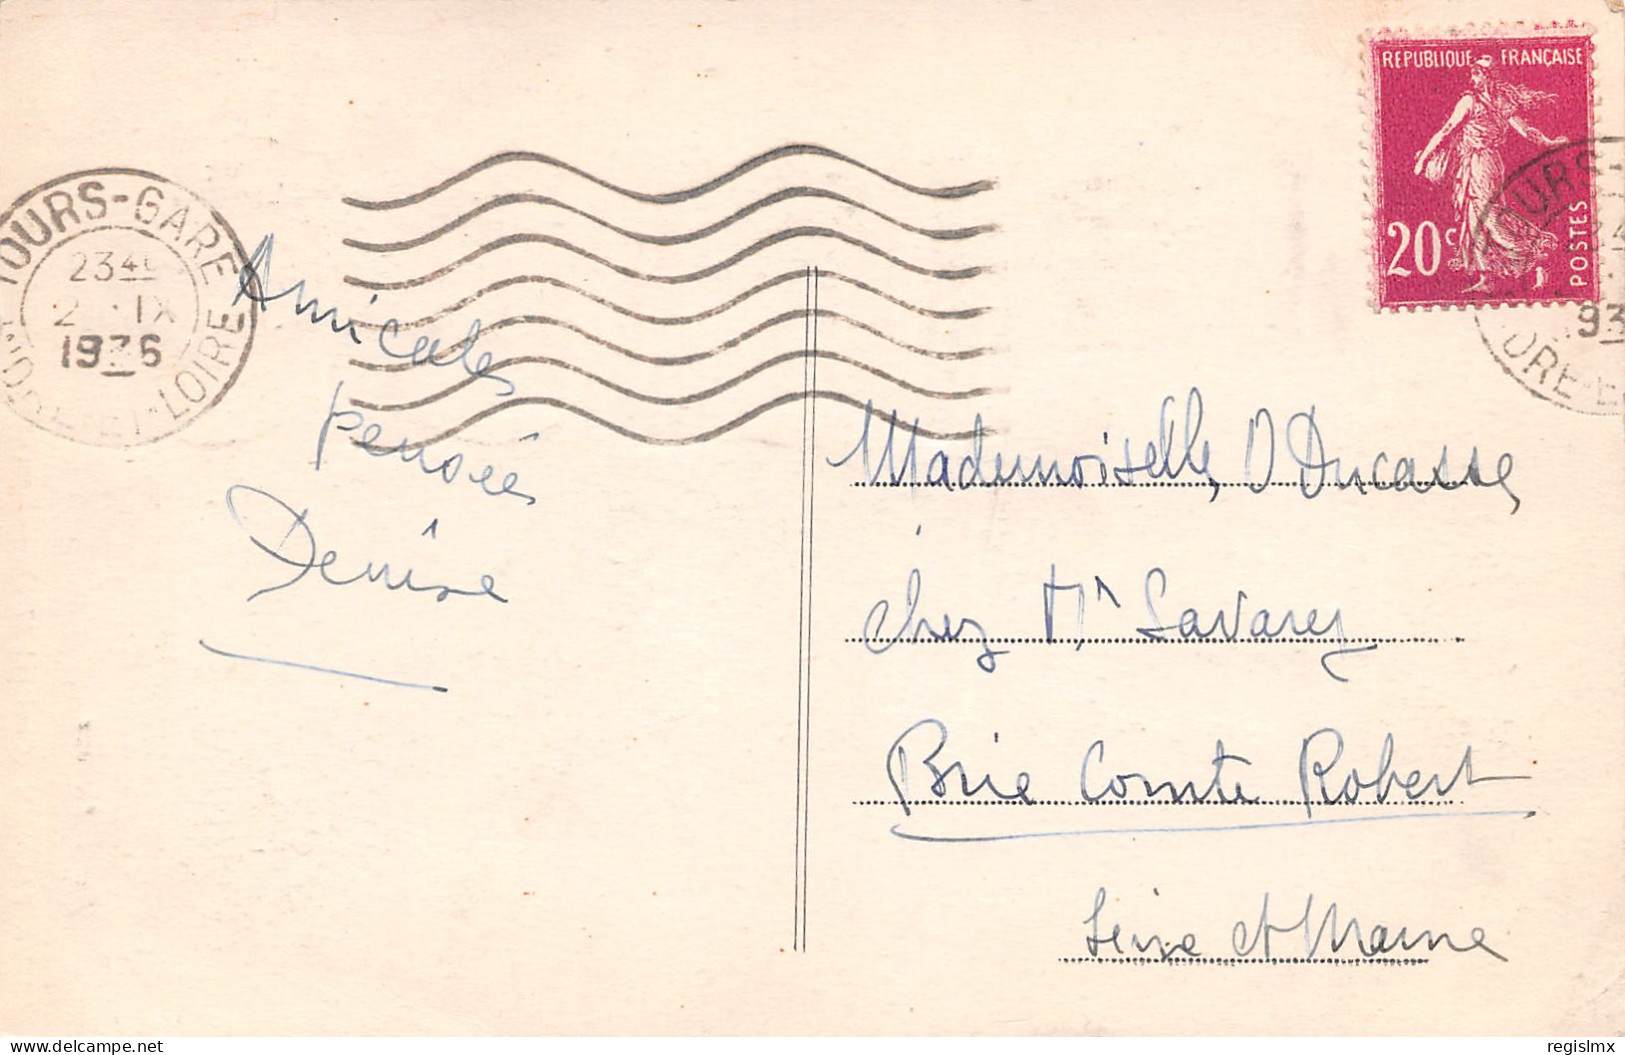 TOURS-GARE
23 40
2 IX
1936
INDRE-ET-LOIRE
REPUBLIQUE FRANÇAISE
20c
POSTES
Amicales
pensées
Denise
Mademoiselle O Ducasse,
chez Mr Savarey
Brie Comte Robert
Seine et Marne
delcampe.net
regislmx